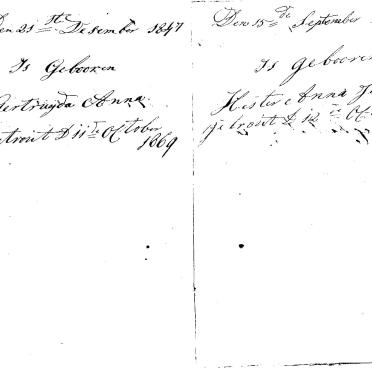 Den 21ste Desember 1847
Is Gebooren
Gertruÿda Anna.
getrout D 11de October
1869
Den 15de September
Is gebooren
Hester Anna
getrout D 12